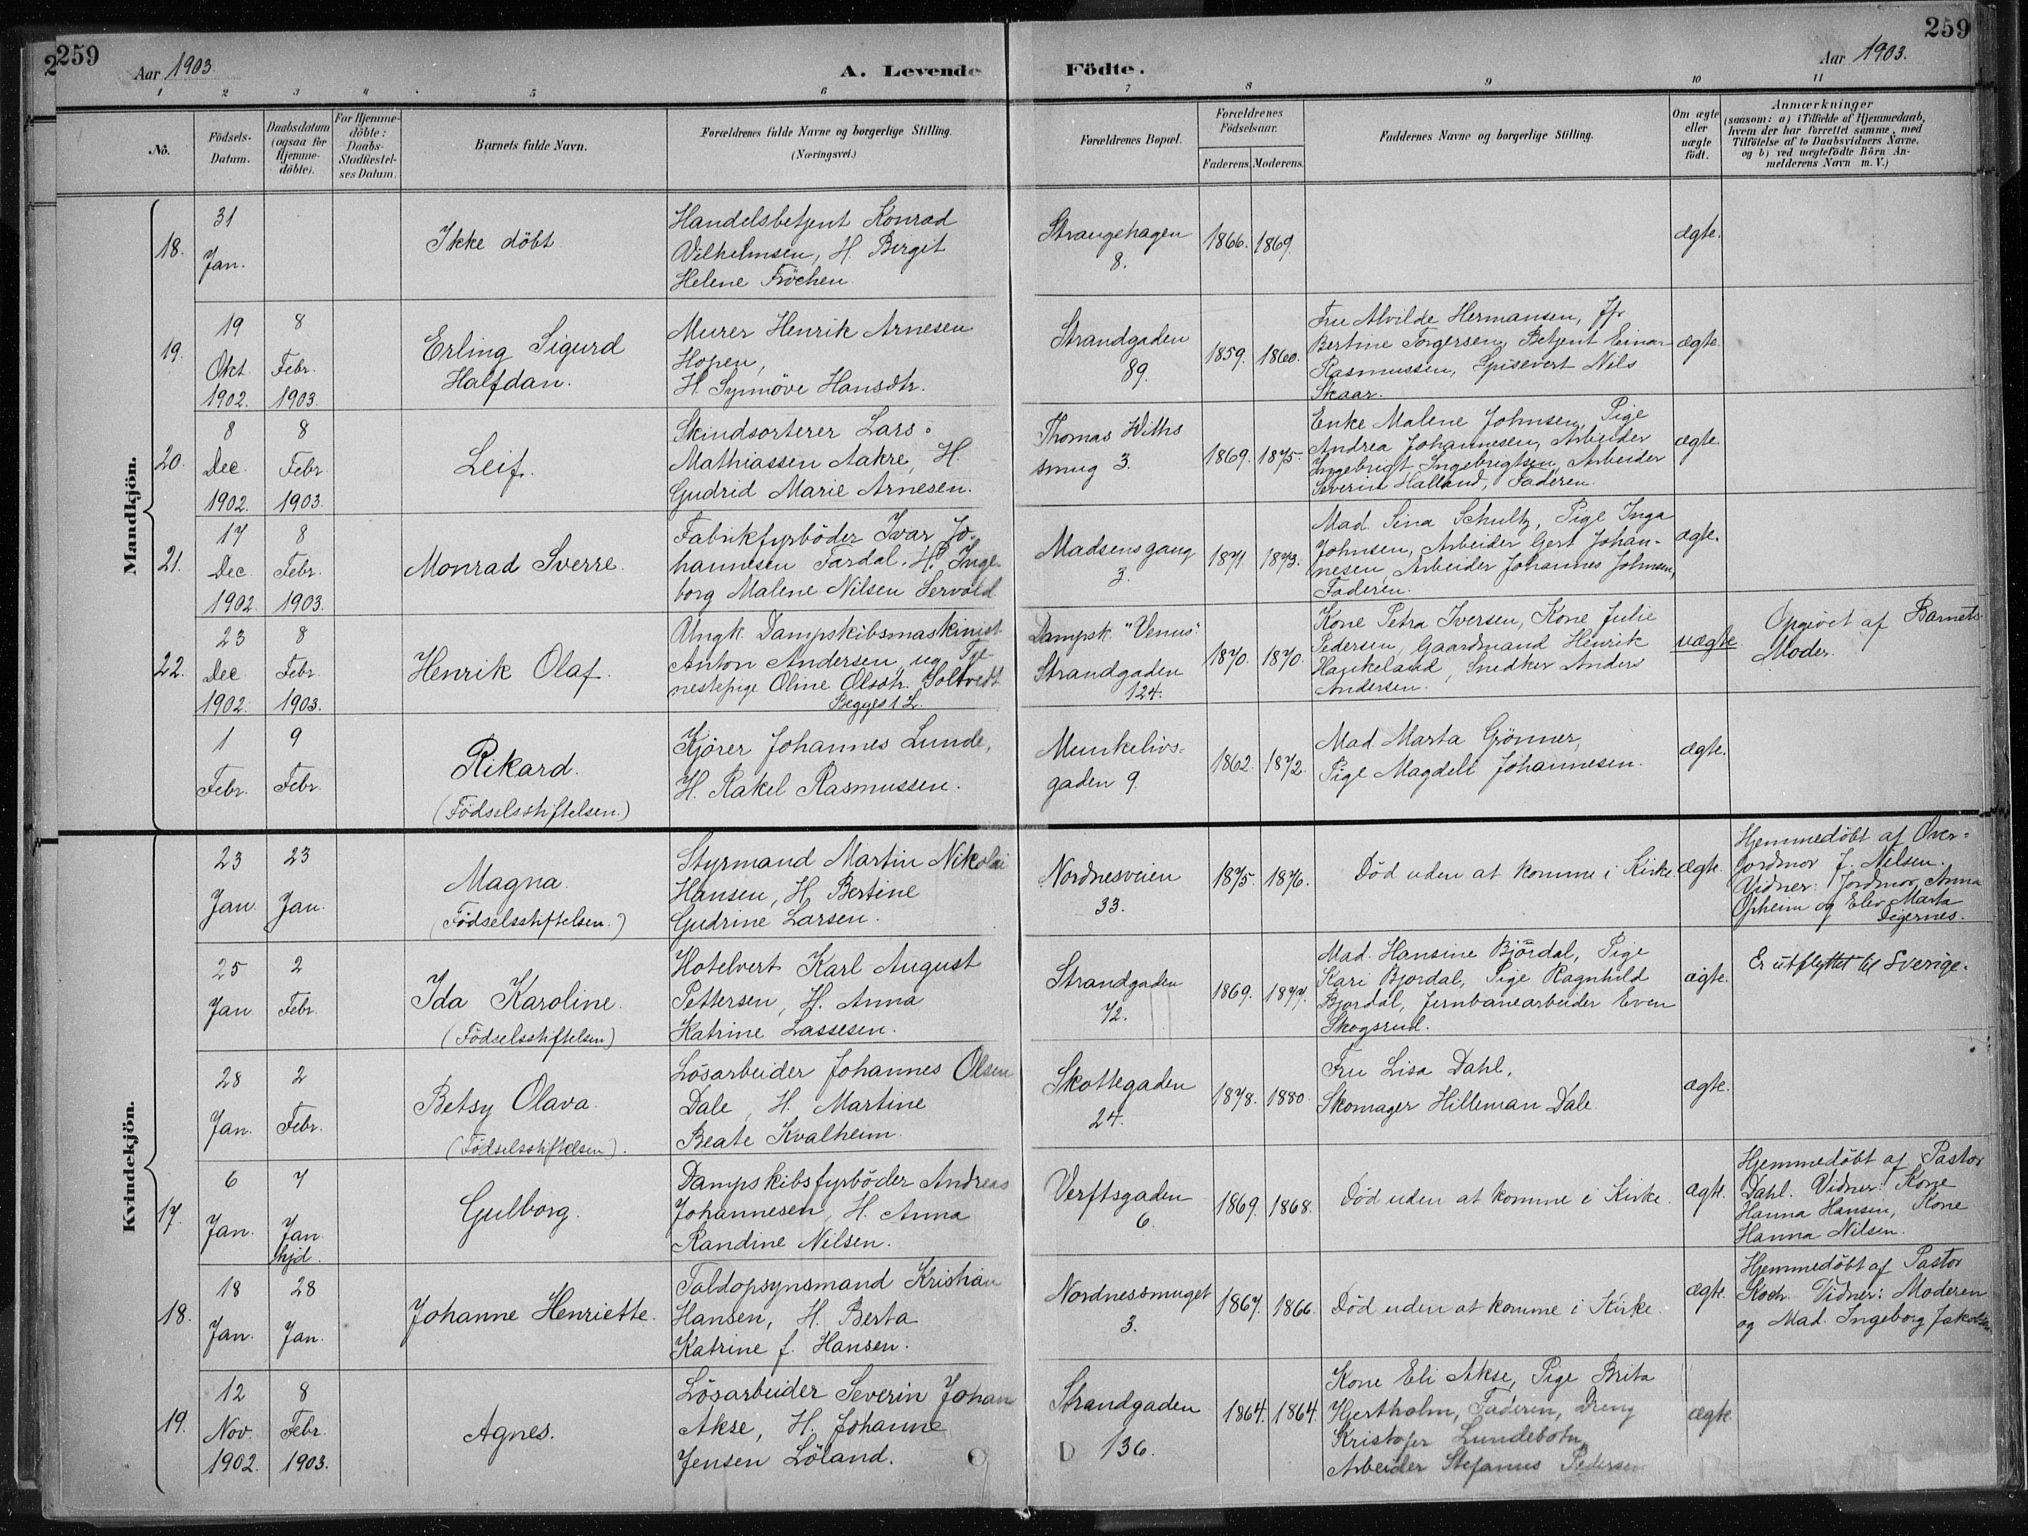 2
259
Aar 1903.
A. Levende Födte.
Aar 1903.
259
1 2 3 4 5 6 7 8 9 10 11
No.
Födsels-
Datum.
Daabsdatum
(ogsaa for
Hjemme-
döbte).
For Hjemme-
döbte:
Daabs-
Stadfæstel-
ses Datum.
Barnets fulde Navn.
Forældrenes fulde Navne og borgerlige Stilling.
(Næringsvei.)
Forældrenes Bopæl.
Forældrenes
Födselsaar.
Faderens. Moderens.
Faddernes Navne og borgerlige Stilling.
Om ægte
eller
uægte
født.
Anmærkninger
(saasom: a) i Tilfælde af Hjemmedaab,
hvem der har forrettet samme, med
Tilföielse af to Daabsvidners Navne,
og b) ved uægtefödte Börn An-
melderens Navn m. V.)
Mandkjön.
18.
31
Jan.
Ikke döbt
Handelsbetjent Konrad
Vilhelmsen, H. Birgit
Helene Fröchen.
Strangehagen
8.
1866. 1869.
ægte.
19.
19
Okt.
1902.
8
Febr.
1903.
Erling Sigurd
Halfdan.
Murer Henrik Arnesen
Hopen,
H. Synnöve Hansdtr.
Strandgaden
89.
1859. 1860.
Fru Alvilde Hermansen, Jfr
Bertine Torgersen, Betjent Einar
Rasmussen, Spisevert Nils
Skaar.
ægte.
20.
8
Dec.
1902.
8
Febr
1903.
Leif.
Skindsorterer Lars
Mathiassen Aakre, H.
Gudrid Marie Arnesen.
Thomas Withs
smug 3.
1869. 1875.
Enke Malene Johnsen, Pige
Andrea Johannesen, Arbeider
Ingebrigt Ingebrigtsen, Arbeider
Severin Halland, Faderen.
ægte.
21.
17
Dec.
1902.
8
Febr.
1903.
Monrad Sverre.
Fabrikfyrböder Ivar Jo-
hannesen Fardal. H. Inge-
borg Malene Nilsen Servold
Madsensgang
3.
1871. 1873.
Mad. Sina Schultz, Pige Inga
Johnsen, Arbeider Gert Johan-
nesen, Arbeider Johannes Johnsen,
Faderen.
ægte.
22.
23
Dec
1902.
8
Febr.
1903.
Henrik Olaf.
Ungk. Dampskibsmaskinist
Anton Andersen og Tje-
nestepige Oline Olsdtr. Soltvedt
Begges 1 L.
Dampsk. "Venus".
Strandgaden
124.
1870. 1870.
Kone Petra Iversen, Kone Julie
Pedersen, Gaardmand Henrik
Haukeland, Snedker Anders
Andersen.
uægte
Opgivet af Barnets
Moder.
1
Febr.
9
Febr.
Rikard.
(Födselsstiftelsen.)
Kjörer Johannes Lunde,
H. Rakel Rasmussen.
Munkelivs-
gaden 9.
1862. 1872.
Mad. Marta Grönner,
Pige Magdeli Johannesen.
ægte.
Kvindekjön.
23
Jan.
23
Jan.
Magna.
(Födselsstiftelsen.)
Styrmand Martin Nikolai
Hansen, H. Bertine
Gudrine Larsen.
Nordnesveien
33.
1875. 1876.
Död uden at komme i Kirke.
ægte.
Hjemmedöbt af Over-
jordmor J. Nilsen.
Vidner: Jordmor Anna
Opheim og Elev Marta
Digernes.
25
Jan
2
Febr.
Ida Karoline.
(Födselsstiftelsen)
Hotelvert Karl August
Pettersen, H. Anna
Katrine Lassesen.
Strandgaden
72.
1869. 1877.
Mad. Hansine Bjordal, Pige
Kari Bjordal, Pige Ragnhild
Bjordal, Jernbanearbeider Even
Skogsrud.
ægte.
Er utflyttet til Sverige.
28
Jan.
2
Febr.
Betsy Olava.
(Födselsstiftelsen).
Lösarbeider Johannes Olsen
Dale, H. Martine
Beate Kvalheim.
Skottegaden
24.
1878. 1880.
Fru Lisa Dahl,
Skomager Hilleman Dale
ægte.
17.
6
Jan.
7
Jan.
hjd.
Gulborg.
Dampskibsfyrböder Andreas
Johannesen, H. Anna
Randine Nilsen.
Verftsgaden
6.
1869. 1868.
Död uden at komme i Kirke.
ægte.
Hjemmedöbt af Pastor
Dahl. Vidner: Kone
Hanna Hansen, Kone
Hanna Nilsen.
18.
18
Jan.
28
Jan.
Johanne Henriette.
Toldopsynsmand Kristian
Hansen, H. Berta
Katrine f. Hansen.
Nordnessmuget
3.
1867. 1866.
Död uden at komme i Kirke.
ægte.
Hjemmedöbt af Pastor
Koch. Vidner: Moderen
og Mad. Ingeborg Jakobsen
19.
12
Nov.
1902.
8
Febr.
1903.
Agnes.
Lösarbeider Severin Johan
Akse, H. Johanne
Jensen Löland.
Strandgaden
D 136.
1864. 1864.
Kone Eli Akse, Pige Brita
Hjertholm, Faderen, Dreng
Kristofer Lundebotn
Arbeider Stefanus Pedersen
ægte.